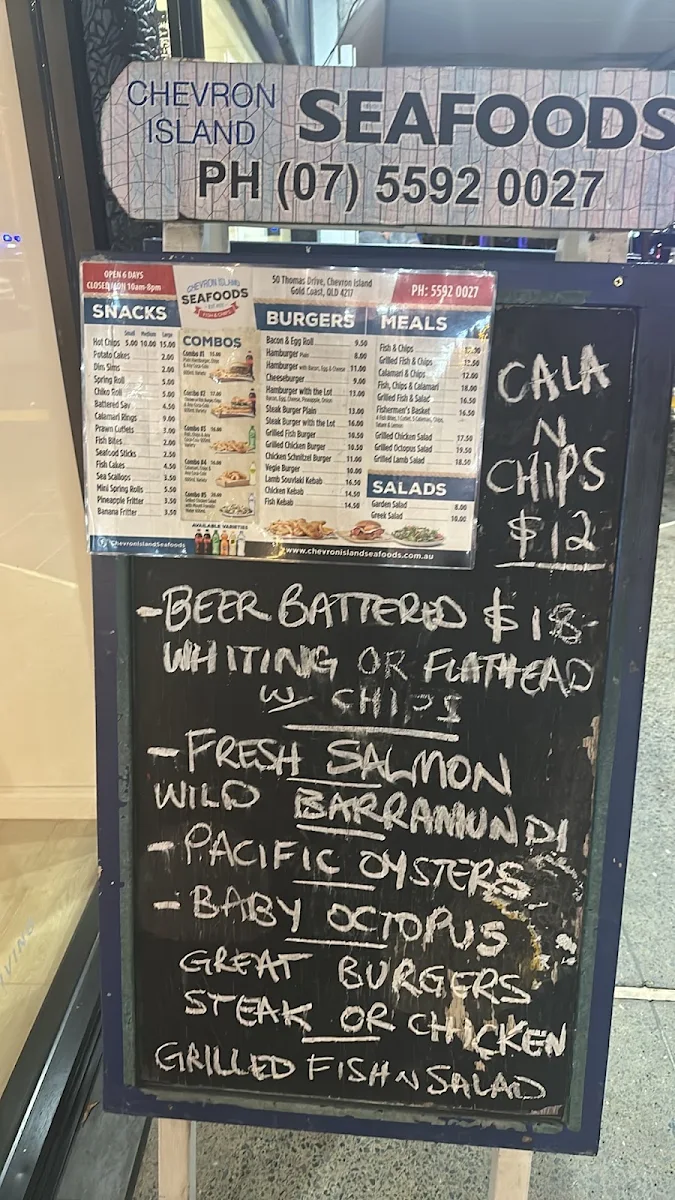 CHEVRON
ISLAND
SEAFOODS
PH (07) 5592 0027
OPEN 6 DAYS
CLOSED MON 10am-8pm
CHEVRON ISLAND
SEAFOODS
FISH & CHIPS
50 Thomas Drive, Chevron Island
Gold Coast, QLD 4217
PH: 5592 0027
SNACKS
Small Medium Large
Hot Chips 5.00 10.00 15.00
Potato Cakes 2.00
Dim Sims 2.00
Spring Roll 5.00
Chiko Roll 5.00
Battered Sav 4.50
Calamari Rings 9.00
Prawn Cutlets 3.00
Fish Bites 2.00
Seafood Sticks 2.50
Fish Cakes 4.50
Sea Scallops 3.50
Mini Spring Rolls 5.50
Pineapple Fritter 3.50
Banana Fritter 3.50
COMBOS
Combo #1
Combo #2
Combo #3
Combo #4
Combo #5
AVAILABLE VARIETIES
BURGERS
Bacon & Egg Roll 9.50
Hamburger Plain 8.00
Hamburger with Bacon, Egg & Cheese 11.00
Cheeseburger 9.00
Hamburger with the Lot 13.00
Bacon, Egg, Cheese, Pineapple, Onion
Steak Burger Plain 13.00
Steak Burger with the Lot 16.00
Grilled Fish Burger 10.50
Grilled Chicken Burger 10.50
Chicken Schnitzel Burger 11.00
Vegie Burger 10.00
Lamb Souvlaki Kebab 16.50
Chicken Kebab 14.50
Fish Kebab 14.50
MEALS
Fish & Chips
Grilled Fish & Chips
Calamari & Chips 12.00
Fish, Chips & Calamari 18.00
Grilled Fish & Salad 16.50
Fishermen's Basket 16.50
Grilled Chicken Salad 17.50
Grilled Octopus Salad 19.50
Grilled Lamb Salad 18.50
SALADS
Garden Salad 8.00
Greek Salad 10.00
ChevronIslandSeafoods
www.chevronislandseafoods.com.au
CALA
N
CHIPS
$12
-BEER BATTERED $18-
WHITING OR FLATHEAD
W/ CHIPS
- FRESH SALMON
WILD BARRAMUNDI
- PACIFIC OYSTERS
- BABY OCTOPUS
GREAT BURGERS
STEAK OR CHICKEN
GRILLED FISH N SALAD